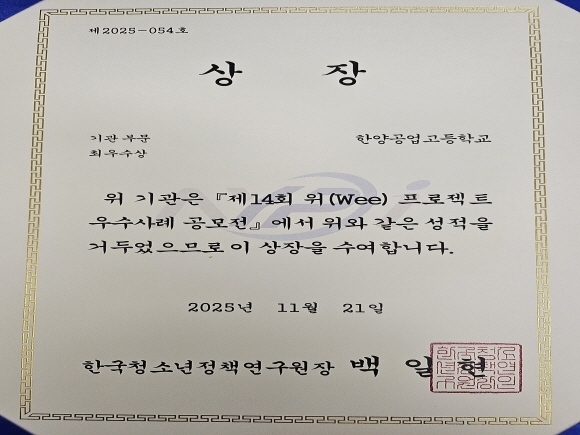 제 2025-054호
상 장
기관 부문
최우수상
한양공업고등학교
위 기관은 『제14회 위(Wee) 프로젝트
우수사례 공모전』에서 위와 같은 성적을
거두었으므로 이 상장을 수여합니다.
2025년 11월 21일
한국청소년정책연구원장 백 일 현